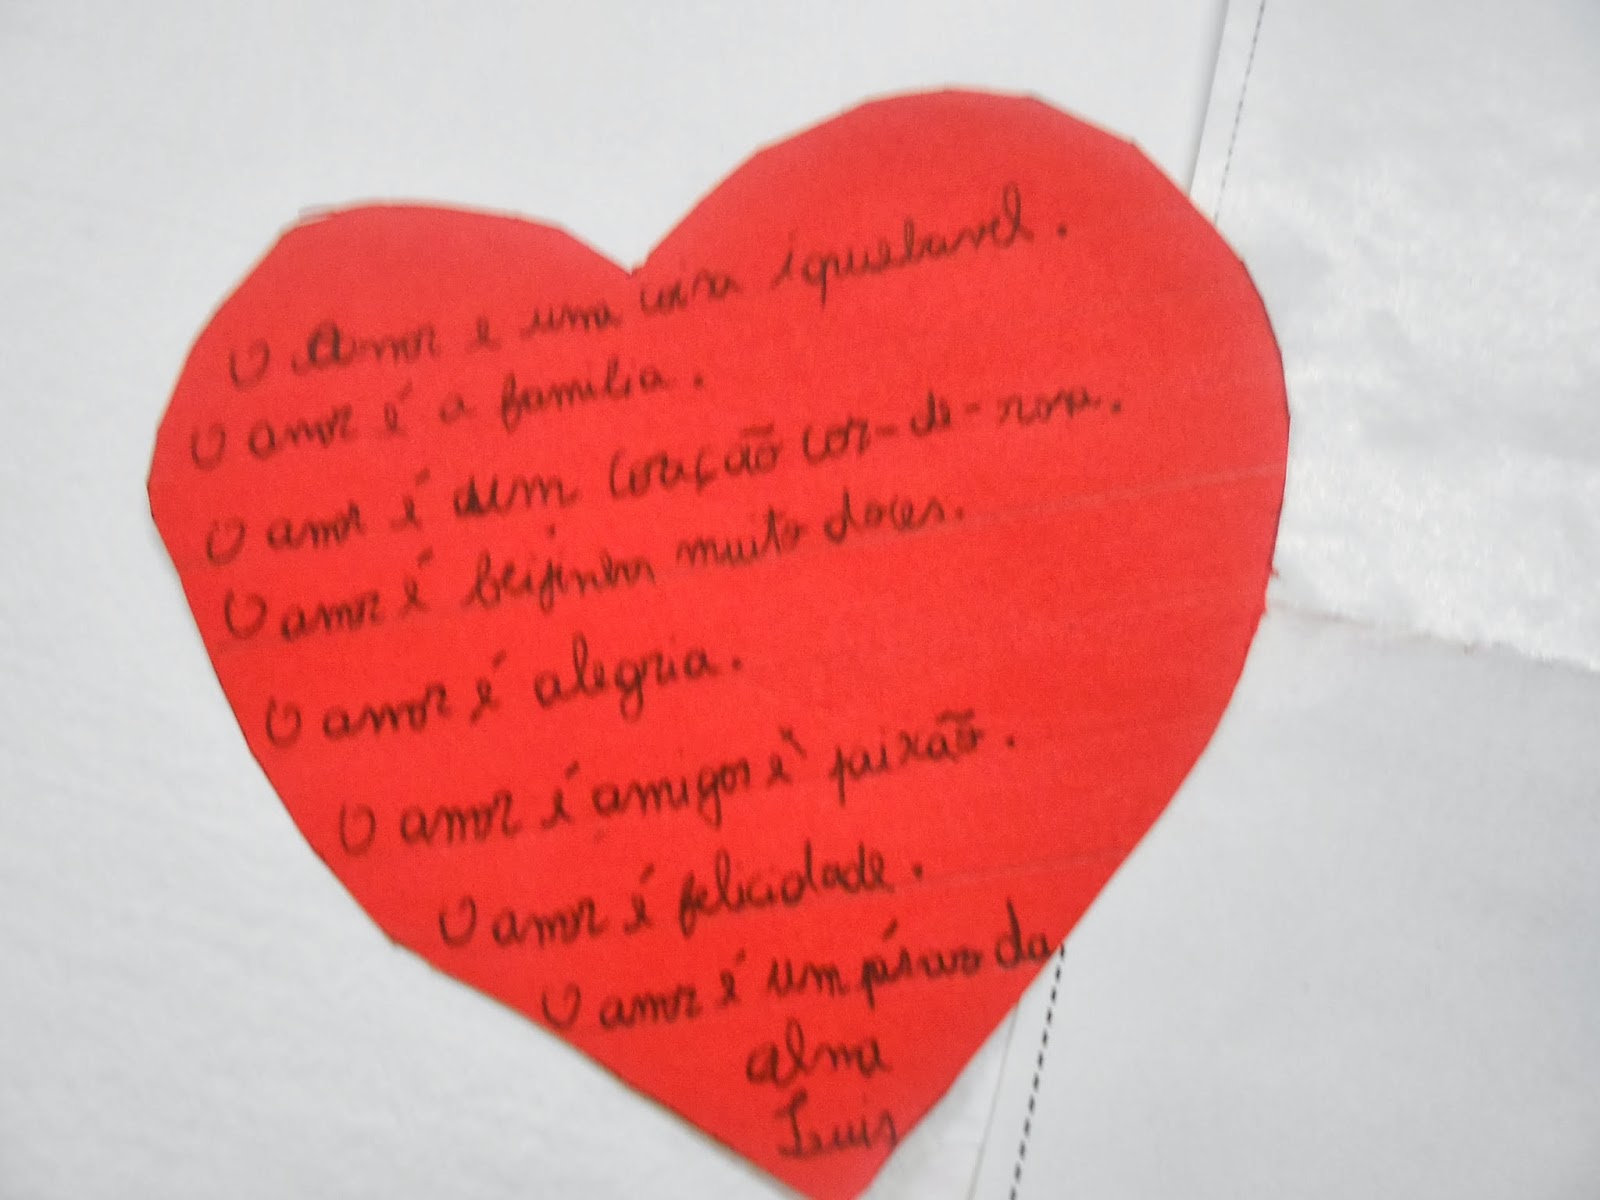 O Amor e uma coisa iquebravel.
O amor é a familia.
O amor é um coração cor-de-rosa.
O amor é beijinhos muito doces.
O amor é alegria.
O amor é amigos é paixão.
O amor é felicidade.
O amor é um da
alma
Luis